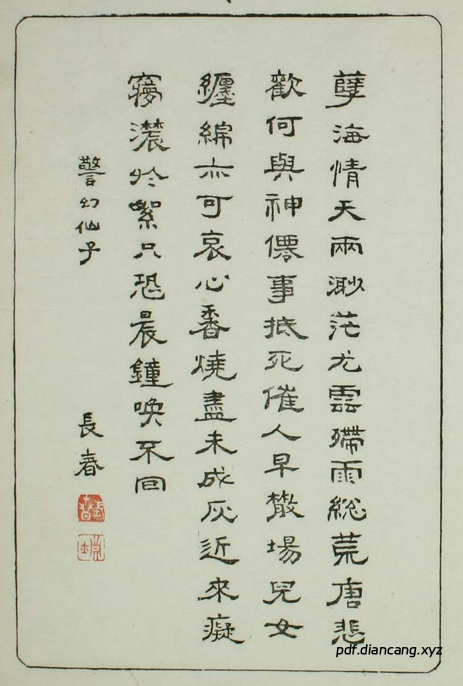 孽海情天兩渺茫尤雲殢雨総荒唐悲
歡何與神僊事抵死催人早散場兒女
纏綿亦可哀心香燒盡未成灰近來癡
夢濃於絮只恐晨鐘喚不回
警幻仙子
長春
pdf.diancang.xyz